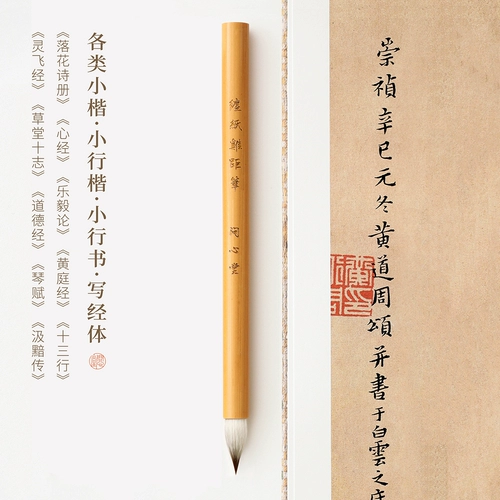 崇禎辛巳元冬黃道周頌并書于白雲之
纏紙雞距筆
問心堂
各类小楷·小行楷·小行书·写经体
《落花诗册》《心经》《乐毅论》《黄庭经》《十三行》
《灵飞经》《草堂十志》《道德经》《琴赋》《汲黯传》